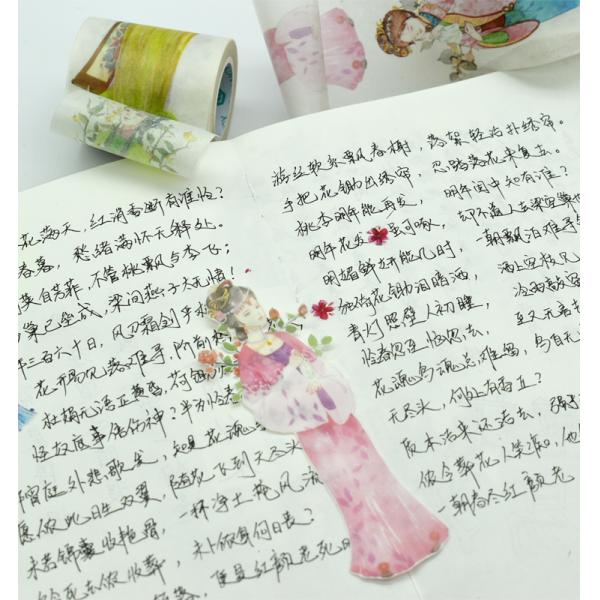 花满天，红消香断有谁怜？
春暮，愁绪满怀无释处。
自芳菲，不管桃飘与李飞；
巢已垒成，梁间燕子太无情！
年三百六十日，风刀霜剑
花开易见落难寻，阶前
杜鹃无语正黄昏，荷锄
怪奴底事倍伤神？半为怜春
宵庭外悲歌发，知是花魂
愿侬此日生双翼，随花飞到天尽头
未若锦囊收艳骨，一杯净土掩风流
死去侬收葬，未卜侬身何日丧？
落，便是红颜老死
游丝软系飘春榭，落絮轻沾扑绣帘。
手把花锄出绣帘，忍踏落花来复去。
桃李明年能再发，明年闺中知有谁？
明年花发虽可啄，却不道人去梁空巢也
明媚鲜妍能几时，朝飘泊难寻
独倚花锄泪暗洒，洒上空枝见
青灯照壁人初睡，冷雨敲窗
怪春忽至恼忽去，至又无言去
花魂鸟魂总难留，鸟自无
无尽头，何处有香丘？
质本洁来还洁去，强于
侬今葬花人笑痴，他
一朝春尽红颜老